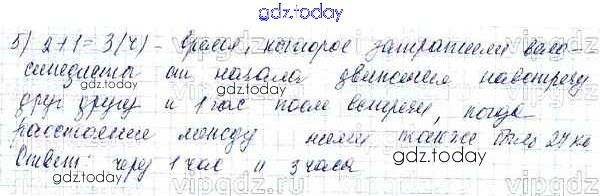 gdz.today
5) 2+1=3(ч) - время, которое затратили вело-
синедисты от начала движения навстречу
друг другу и 1 час после встречи, когда
расстояние между ними также было 27 км
Ответ: через 1 час и 3 часа
gdz.today
gdz.today
gdz.today